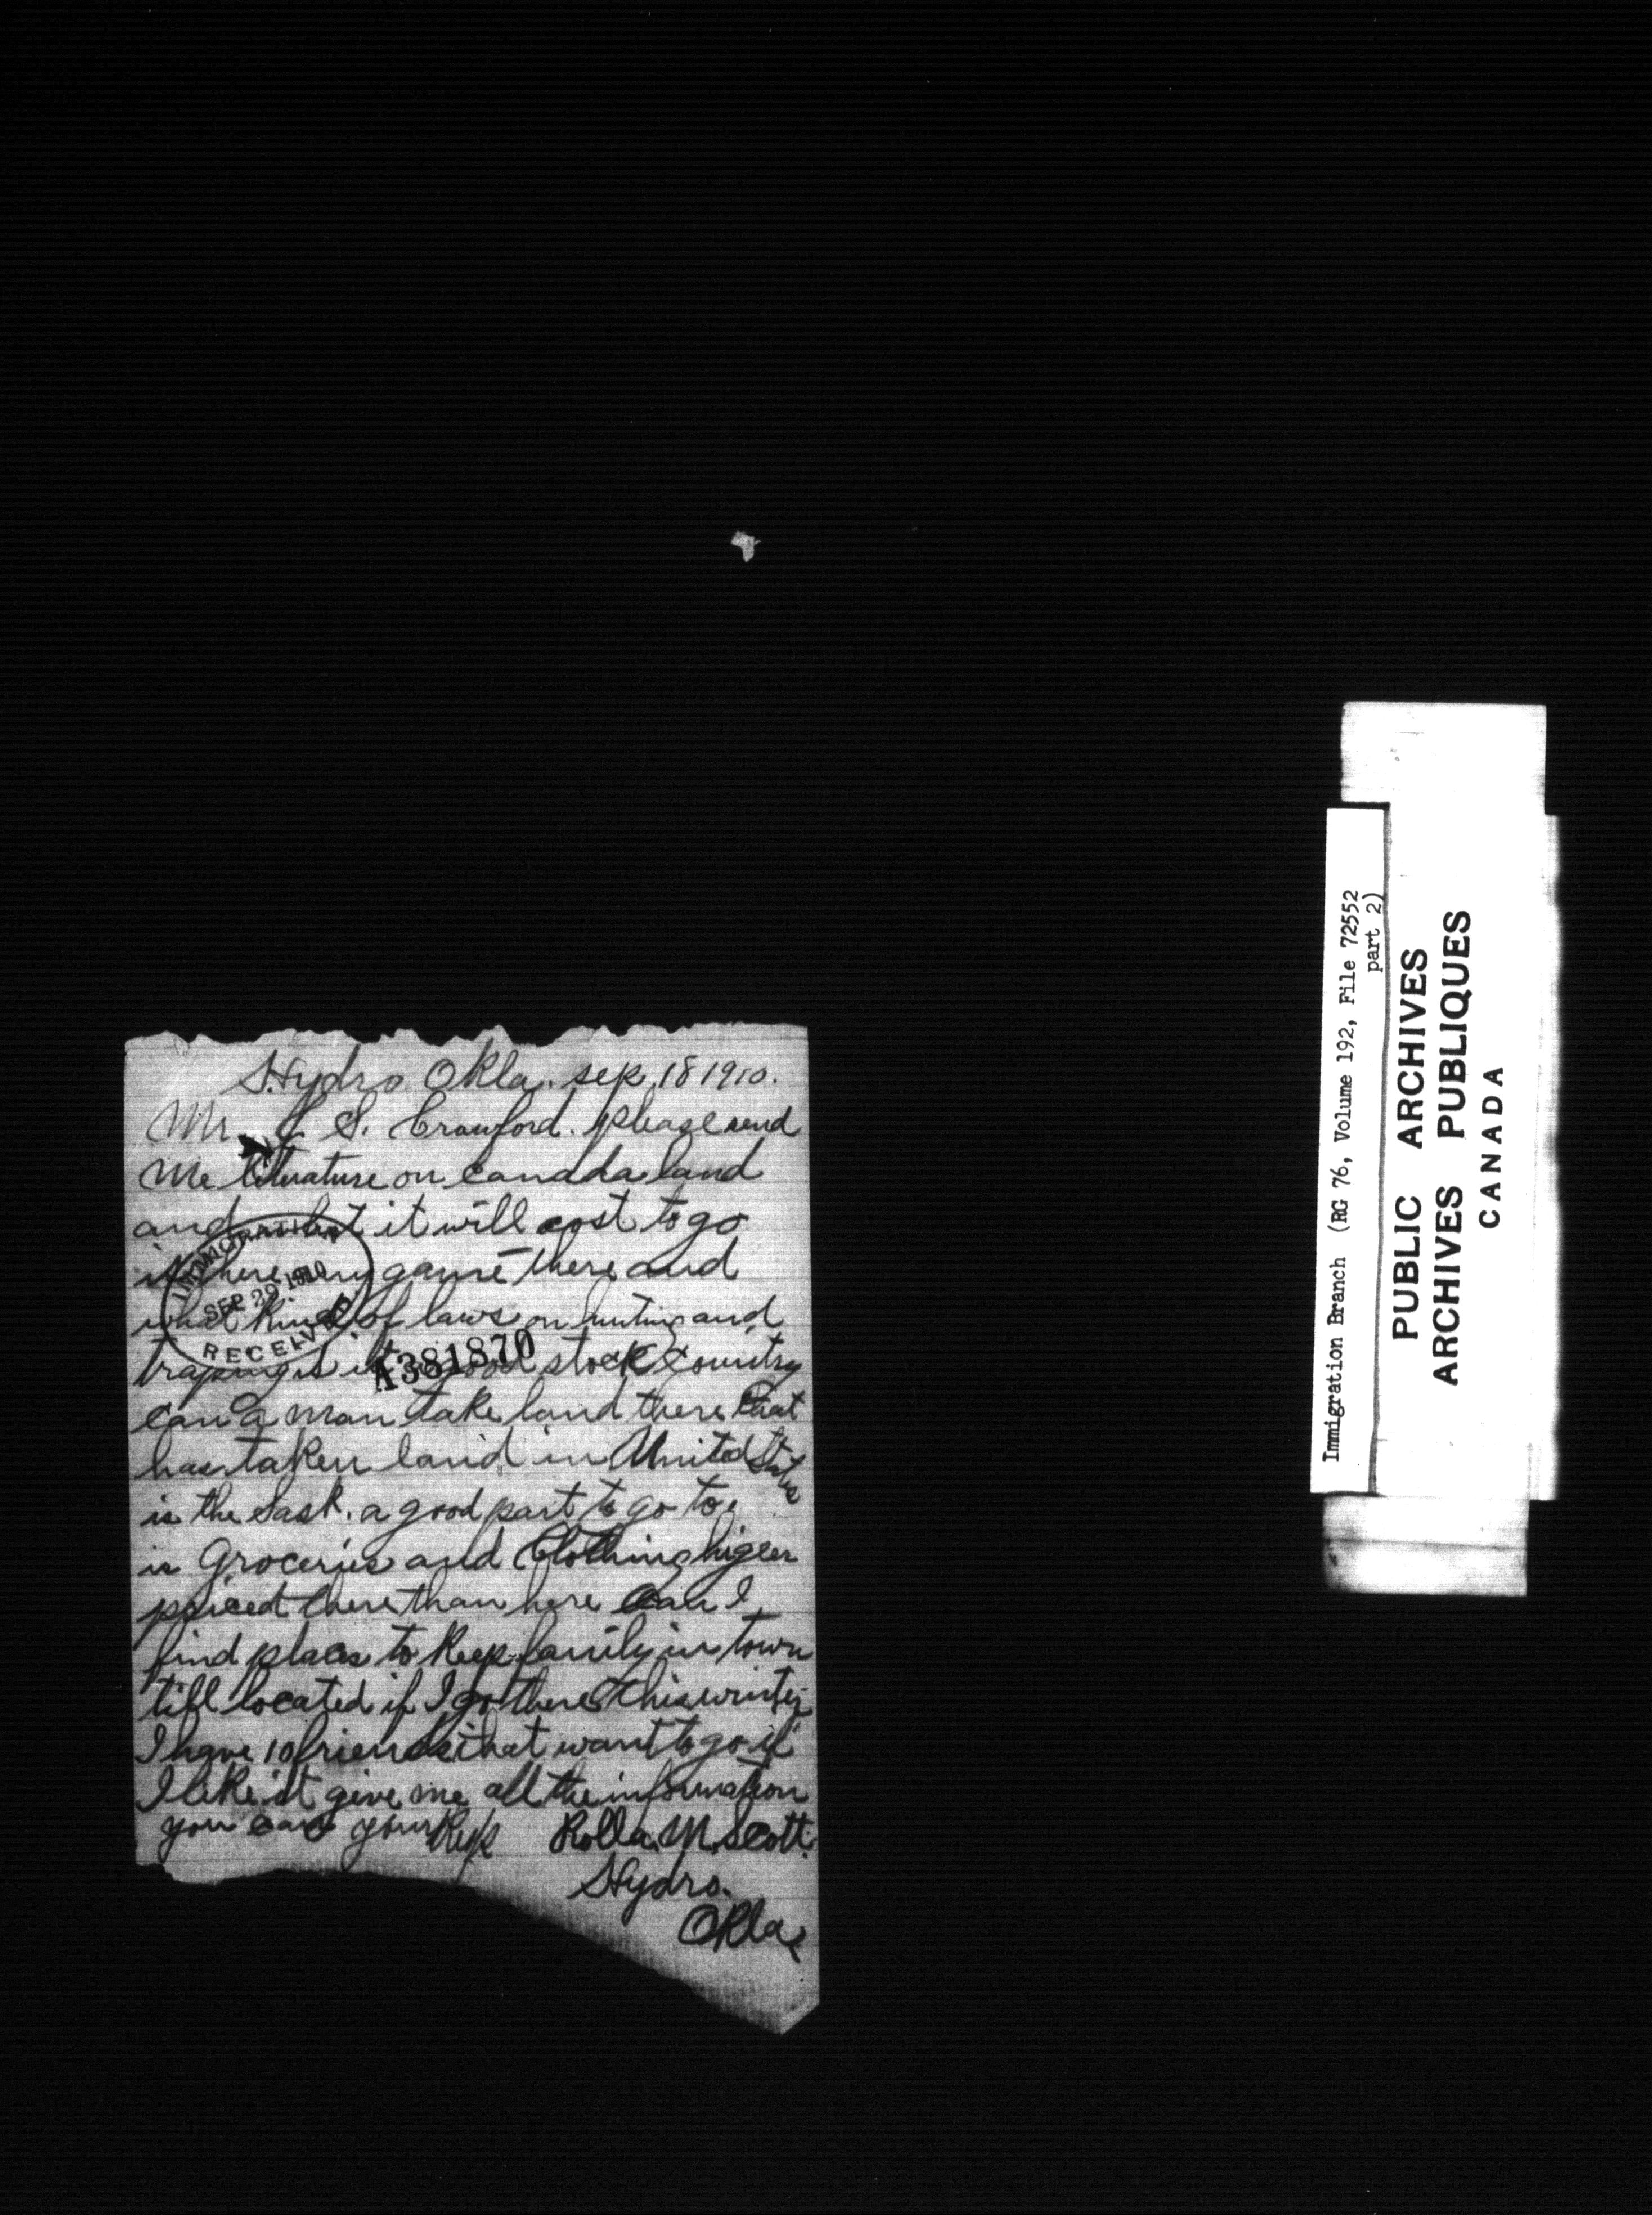 Hydro. Okla. sep. 18 1910.
Mr. J. S. Crawford. please send
me literature on canada land
and what it will cost to go
is there any game there and
what kind of laws on hunting and
traping is it a good stock country
can a man take land there that
has taken land in United States
is the Sask. a good part to go to.
is Groceries and Clothing higeer
priced there than here can I
find places to keep family in town
till located if I go there this winter
I have 10 friends that want to go if
I like it give me all the information
you can your Resp Rolla. M. Scott.
Hydro.
Okla
IMMIGRATION
SEP 29 1910
RECEIVED
A381870
Immigration Branch (RG 76, Volume 192, File 72552
part 2)
PUBLIC ARCHIVES
ARCHIVES PUBLIQUES
CANADA